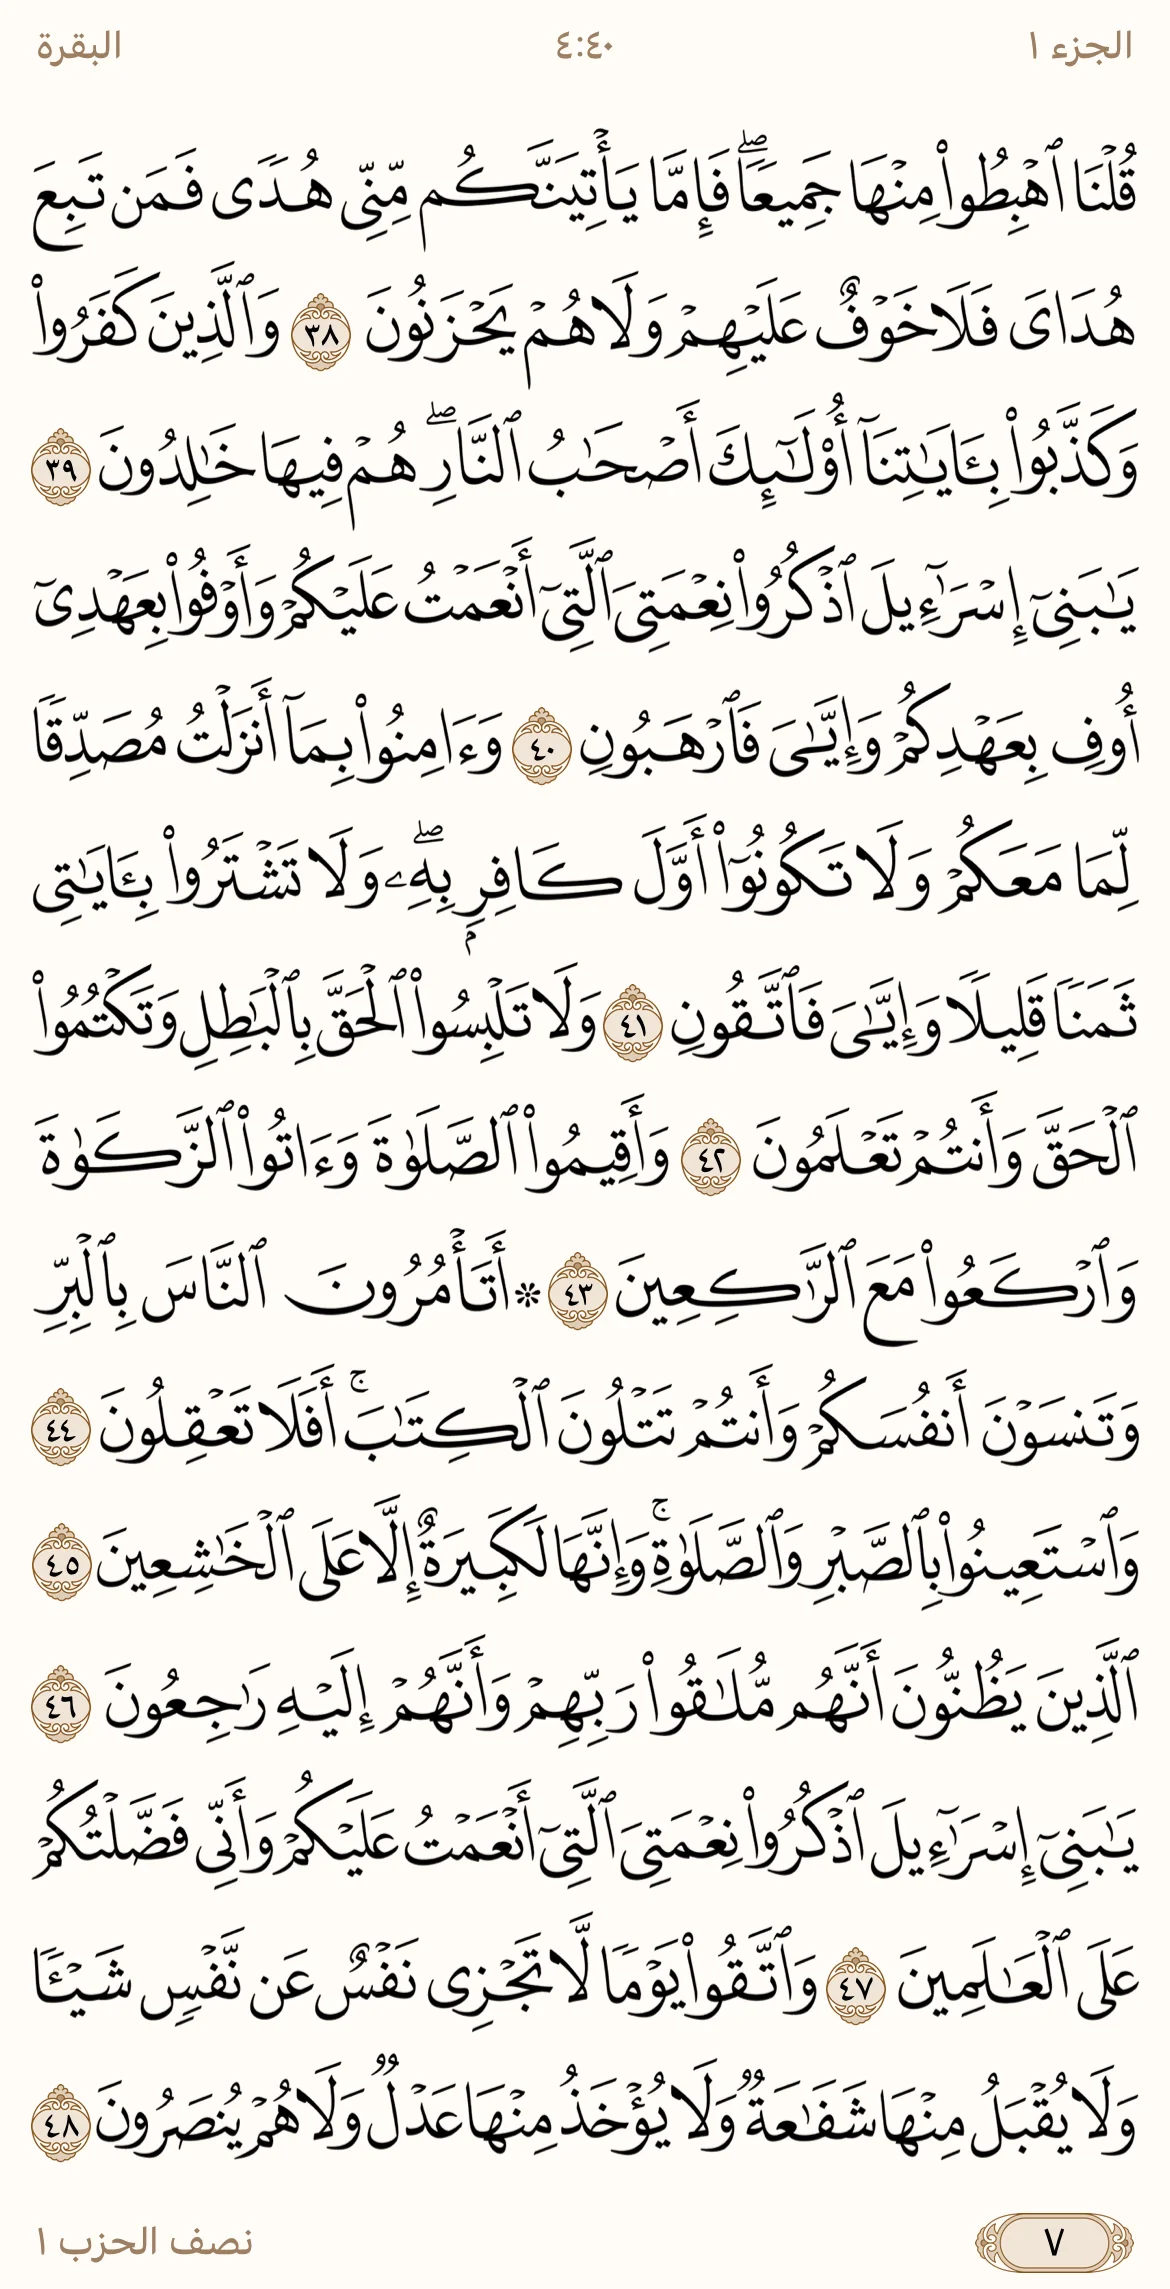 الجزء ١
٤:٤٠
البقرة
قُلْنَا ٱهْبِطُوا۟ مِنْهَا جَمِيعًۭا ۖ فَإِمَّا يَأْتِيَنَّكُم مِّنِّى هُدًۭى فَمَن تَبِعَ
هُدَاىَ فَلَا خَوْفٌ عَلَيْهِمْ وَلَا هُمْ يَحْزَنُونَ ٣٨ وَٱلَّذِينَ كَفَرُوا۟
وَكَذَّبُوا۟ بِـَٔايَـٰتِنَآ أُو۟لَـٰٓئِكَ أَصْحَـٰبُ ٱلنَّارِ ۖ هُمْ فِيهَا خَـٰلِدُونَ ٣٩
يَـٰبَنِىٓ إِسْرَٰٓءِيلَ ٱذْكُرُوا۟ نِعْمَتِىَ ٱلَّتِىٓ أَنْعَمْتُ عَلَيْكُمْ وَأَوْفُوا۟ بِعَهْدِىٓ
أُوفِ بِعَهْدِكُمْ وَإِيَّـٰىَ فَٱرْهَبُونِ ٤٠ وَءَامِنُوا۟ بِمَآ أَنزَلْتُ مُصَدِّقًۭا
لِّمَا مَعَكُمْ وَلَا تَكُونُوٓا۟ أَوَّلَ كَافِرٍۭ بِهِۦ ۖ وَلَا تَشْتَرُوا۟ بِـَٔايَـٰتِى
ثَمَنًۭا قَلِيلًۭا وَإِيَّـٰىَ فَٱتَّقُونِ ٤١ وَلَا تَلْبِسُوا۟ ٱلْحَقَّ بِٱلْبَـٰطِلِ وَتَكْتُمُوا۟
ٱلْحَقَّ وَأَنتُمْ تَعْلَمُونَ ٤٢ وَأَقِيمُوا۟ ٱلصَّلَوٰةَ وَءَاتُوا۟ ٱلزَّكَوٰةَ
وَٱرْكَعُوا۟ مَعَ ٱلرَّٰكِعِينَ ٤٣ ۞ أَتَأْمُرُونَ ٱلنَّاسَ بِٱلْبِرِّ
وَتَنسَوْنَ أَنفُسَكُمْ وَأَنتُمْ تَتْلُونَ ٱلْكِتَـٰبَ ۚ أَفَلَا تَعْقِلُونَ ٤٤
وَٱسْتَعِينُوا۟ بِٱلصَّبْرِ وَٱلصَّلَوٰةِ ۚ وَإِنَّهَا لَكَبِيرَةٌ إِلَّا عَلَى ٱلْخَـٰشِعِينَ ٤٥
ٱلَّذِينَ يَظُنُّونَ أَنَّهُم مُّلَـٰقُوا۟ رَبِّهِمْ وَأَنَّهُمْ إِلَيْهِ رَٰجِعُونَ ٤٦
يَـٰبَنِىٓ إِسْرَٰٓءِيلَ ٱذْكُرُوا۟ نِعْمَتِىَ ٱلَّتِىٓ أَنْعَمْتُ عَلَيْكُمْ وَأَنِّى فَضَّلْتُكُمْ
عَلَى ٱلْعَـٰلَمِينَ ٤٧ وَٱتَّقُوا۟ يَوْمًۭا لَّا تَجْزِى نَفْسٌ عَن نَّفْسٍۢ شَيْـًۭٔا
وَلَا يُقْبَلُ مِنْهَا شَفَـٰعَةٌۭ وَلَا يُؤْخَذُ مِنْهَا عَدْلٌۭ وَلَا هُمْ يُنصَرُونَ ٤٨
٧
نصف الحزب ١